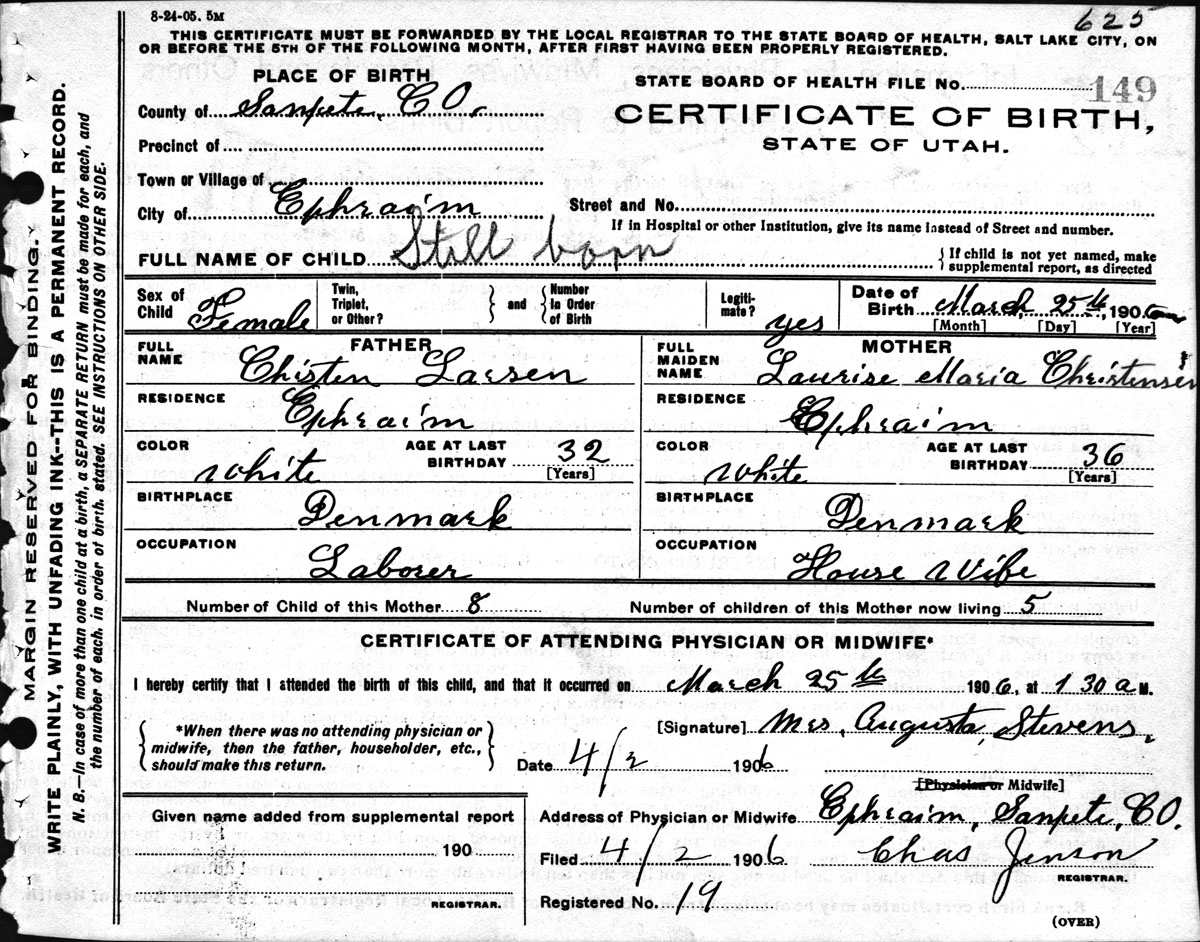 8-24-05. 5M
625
THIS CERTIFICATE MUST BE FORWARDED BY THE LOCAL REGISTRAR TO THE STATE BOARD OF HEALTH, SALT LAKE CITY, ON
OR BEFORE THE 5TH OF THE FOLLOWING MONTH, AFTER FIRST HAVING BEEN PROPERLY REGISTERED.
PLACE OF BIRTH
STATE BOARD OF HEALTH FILE No. 149
County of Sanpete, CO.
CERTIFICATE OF BIRTH,
STATE OF UTAH.
Precinct of
Town or Village of
City of Ephraim
Street and No.
If in Hospital or other Institution, give its name instead of Street and number.
FULL NAME OF CHILD Still born
{ If child is not yet named, make
supplemental report, as directed
Sex of
Child Female
Twin,
Triplet,
or Other?
} and {
Number
in Order
of Birth
Legiti-
mate? yes
Date of
Birth March 25th, 1906
[Month] [Day] [Year]
FATHER
FULL
NAME Chisten Larsen
MOTHER
FULL
MAIDEN
NAME Laurise Maria Christensen
RESIDENCE Ephraim
RESIDENCE Ephraim
COLOR White
AGE AT LAST
BIRTHDAY 32
[Years]
COLOR White
AGE AT LAST
BIRTHDAY 36
[Years]
BIRTHPLACE Denmark
BIRTHPLACE Denmark
OCCUPATION Laborer
OCCUPATION House Wife
Number of Child of this Mother 8
Number of children of this Mother now living 5
CERTIFICATE OF ATTENDING PHYSICIAN OR MIDWIFE*
I hereby certify that I attended the birth of this child, and that it occurred on March 25th 1906, at 1 30 a M.
{ *When there was no attending physician or
midwife, then the father, householder, etc.,
should make this return. }
[Signature] Mrs, Augusta, Stevens,
Date 4/2 1906
[Physician or Midwife]
Given name added from supplemental report
190
REGISTRAR.
Address of Physician or Midwife Ephraim, Sanpete, CO.
Filed 4/2 1906 Chas Jenson
REGISTRAR.
Registered No. 19
(OVER)
MARGIN RESERVED FOR BINDING.
WRITE PLAINLY, WITH UNFADING INK--THIS IS A PERMANENT RECORD.
N. B.—In case of more than one child at a birth, a SEPARATE RETURN must be made for each, and
the number of each, in order of birth, stated. SEE INSTRUCTIONS ON OTHER SIDE.